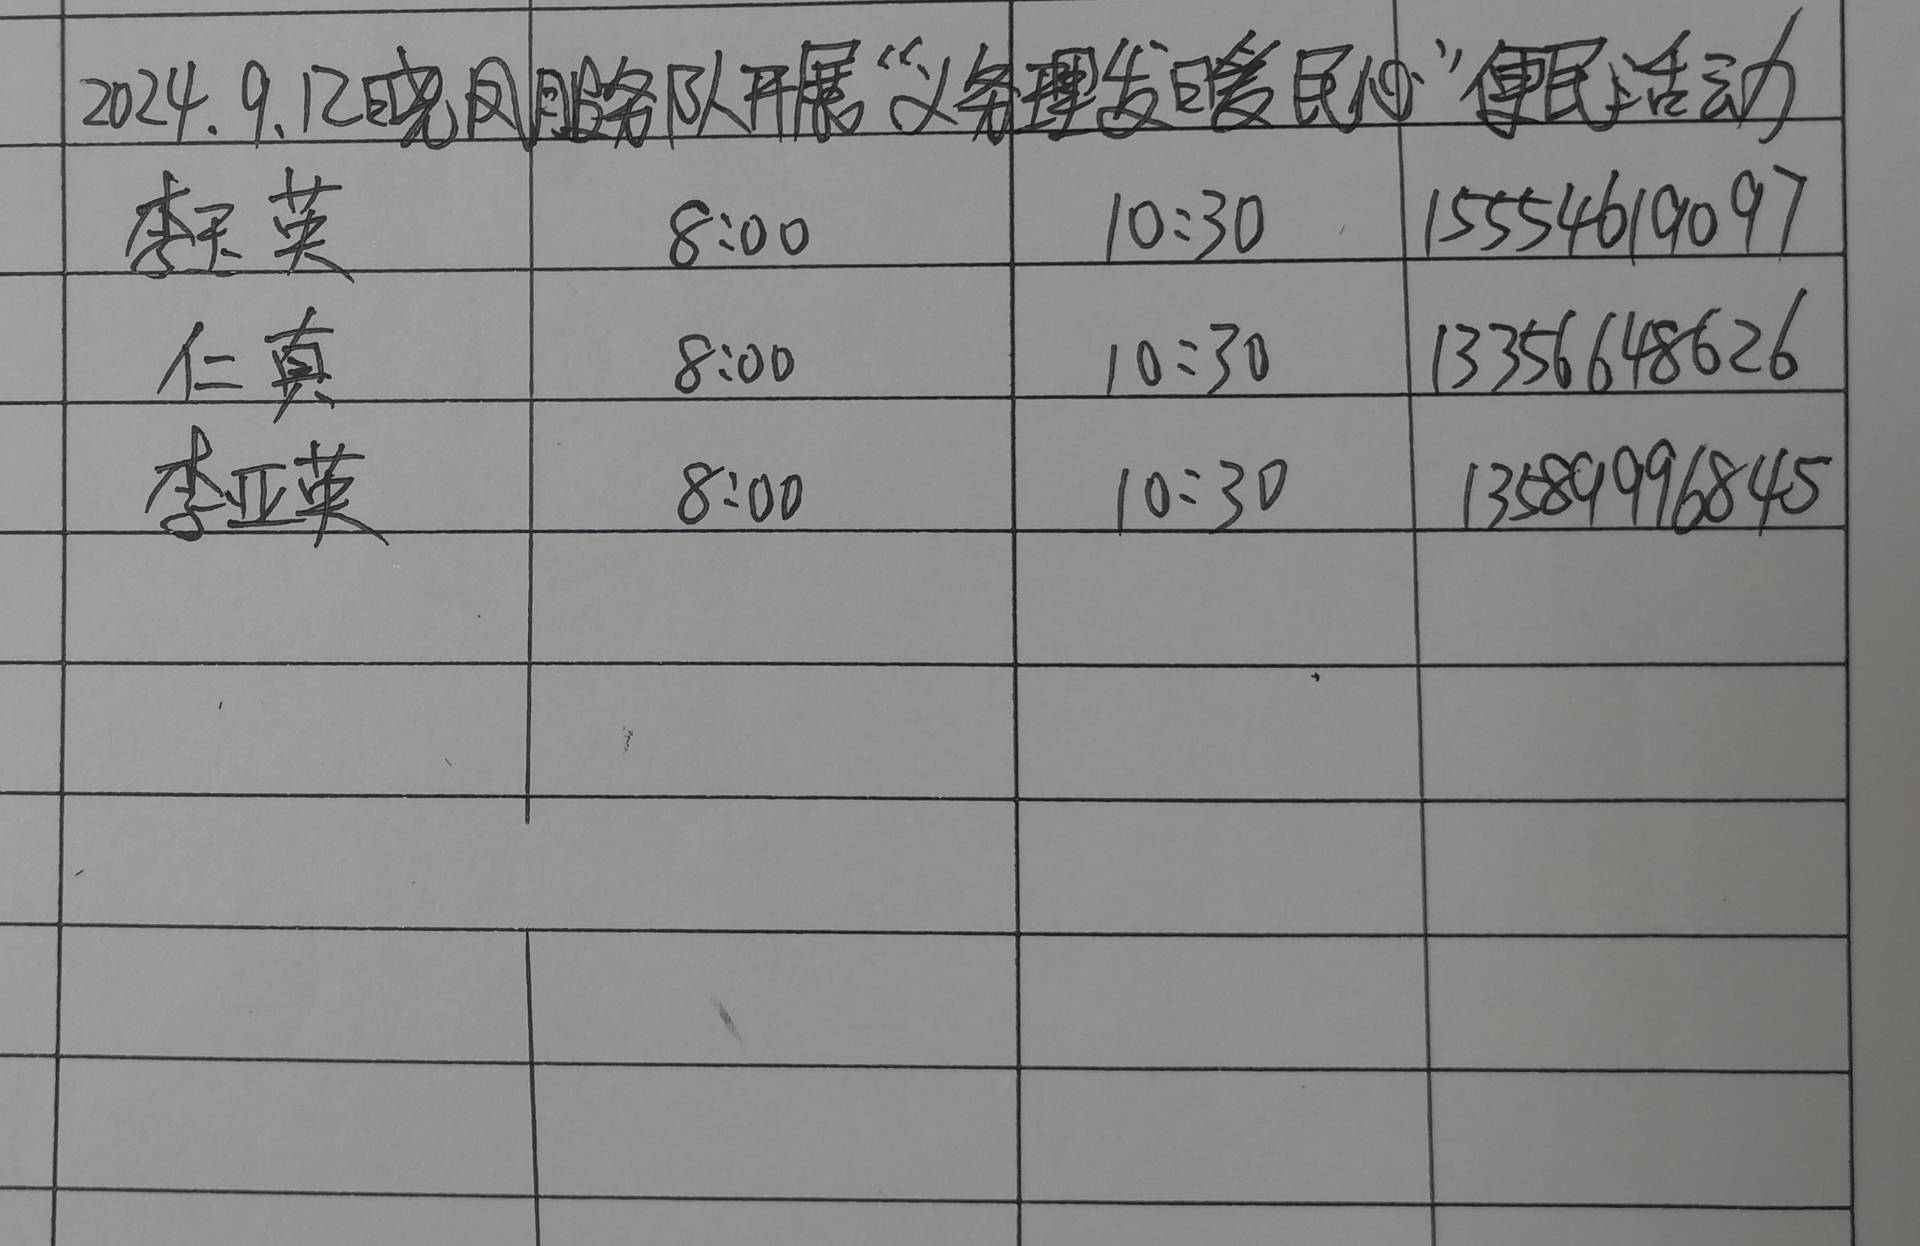 2024.9.12日晓风服务队开展“义务理发暖民心”便民活动
李玉英 8:00 10:30 15554619097
仁真 8:00 10:30 13356648626
李亚英 8:00 10:30 13589996845